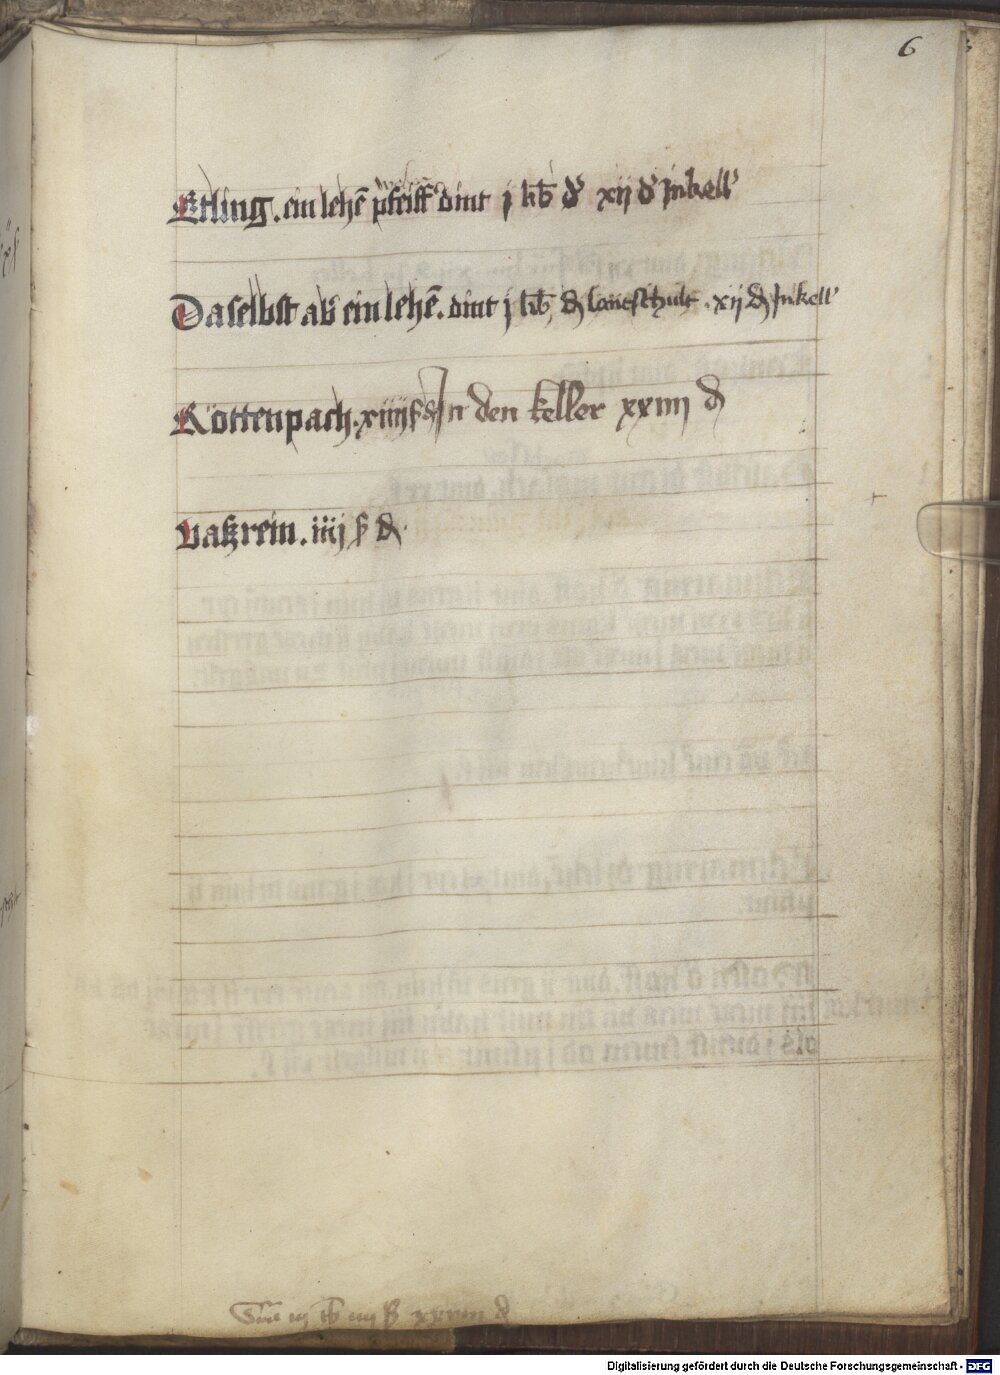 6
Etling . ein lehē pfeiff dint j lib ₰ xij ₰ Inkell'
Daselbst ab' ein lehē . dint j lib ₰ xij ₰ Inkell'
Rottenpach . xiiij ß ₰ In den keller xxiiij ₰
Vatzrein . iiij ß ₰ .
Digitalisierung gefördert durch die Deutsche Forschungsgemeinschaft - DFG